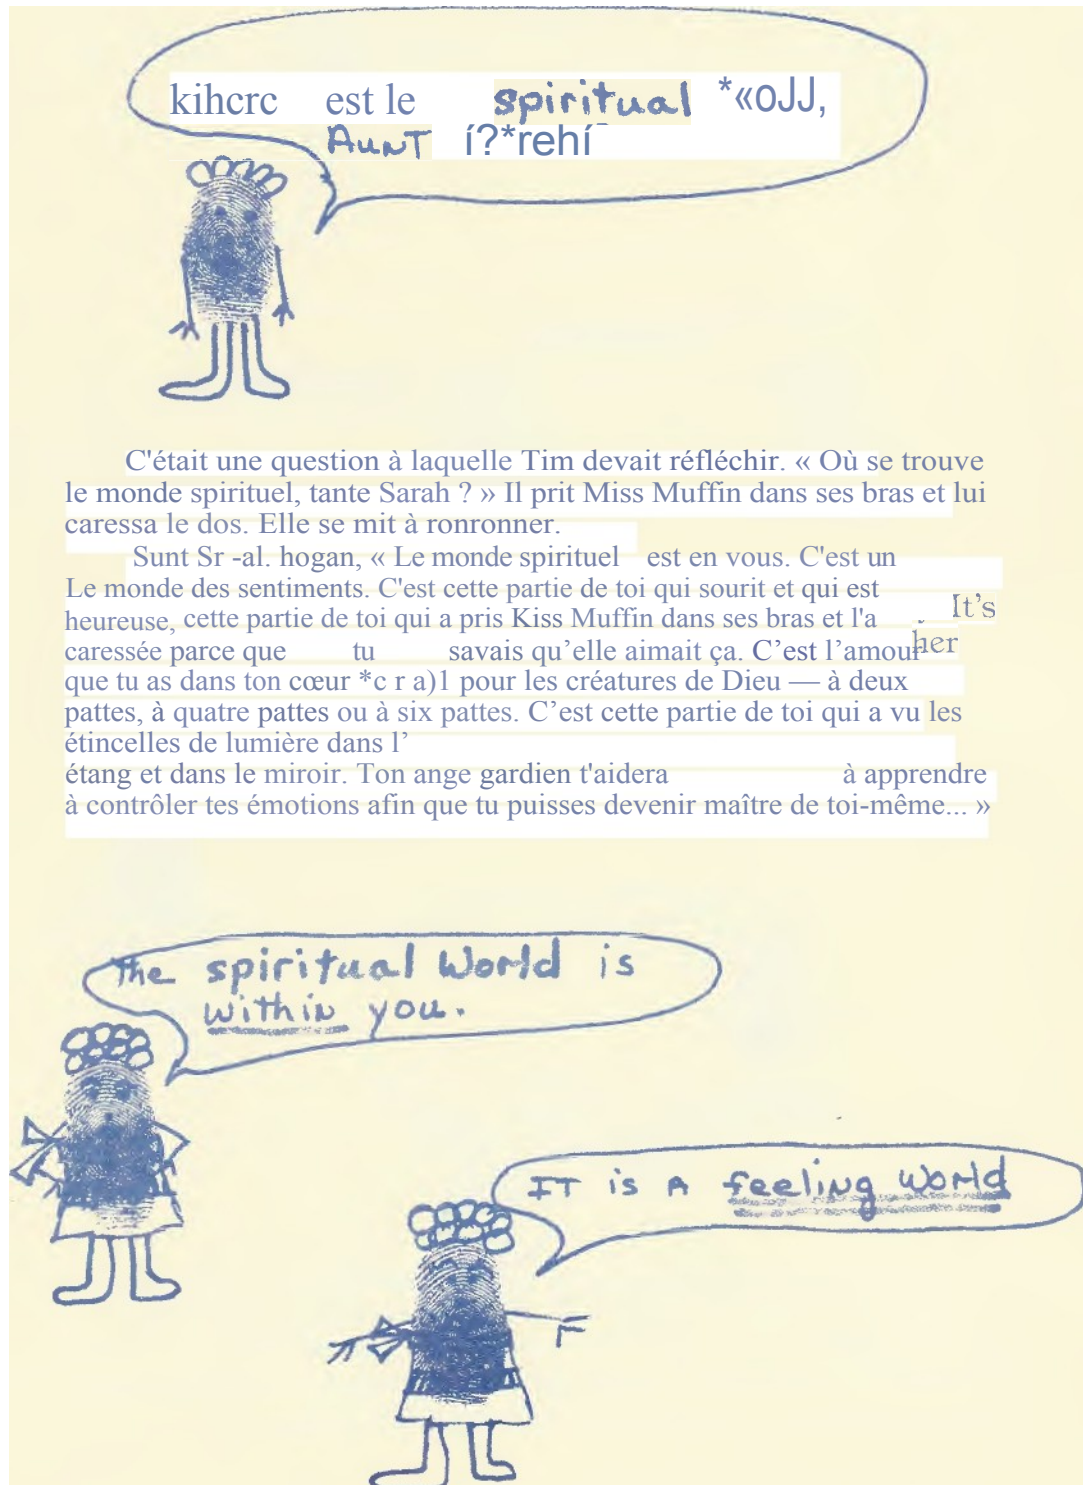 kihcrc est le spiritual *«oJJ,
AUNT í?*rehí
C'était une question à laquelle Tim devait réfléchir. « Où se trouve
le monde spirituel, tante Sarah ? » Il prit Miss Muffin dans ses bras et lui
caressa le dos. Elle se mit à ronronner.
Sunt Sr -al. hogan, « Le monde spirituel est en vous. C'est un
Le monde des sentiments. C'est cette partie de toi qui sourit et qui est
heureuse, cette partie de toi qui a pris Kiss Muffin dans ses bras et l'a It's
caressée parce que tu savais qu'elle aimait ça. C'est l'amour her
que tu as dans ton cœur *c r a)1 pour les créatures de Dieu — à deux
pattes, à quatre pattes ou à six pattes. C'est cette partie de toi qui a vu les
étincelles de lumière dans l'
étang et dans le miroir. Ton ange gardien t'aidera à apprendre
à contrôler tes émotions afin que tu puisses devenir maître de toi-même... »
The spiritual World is
within you.
IT is A feeling World